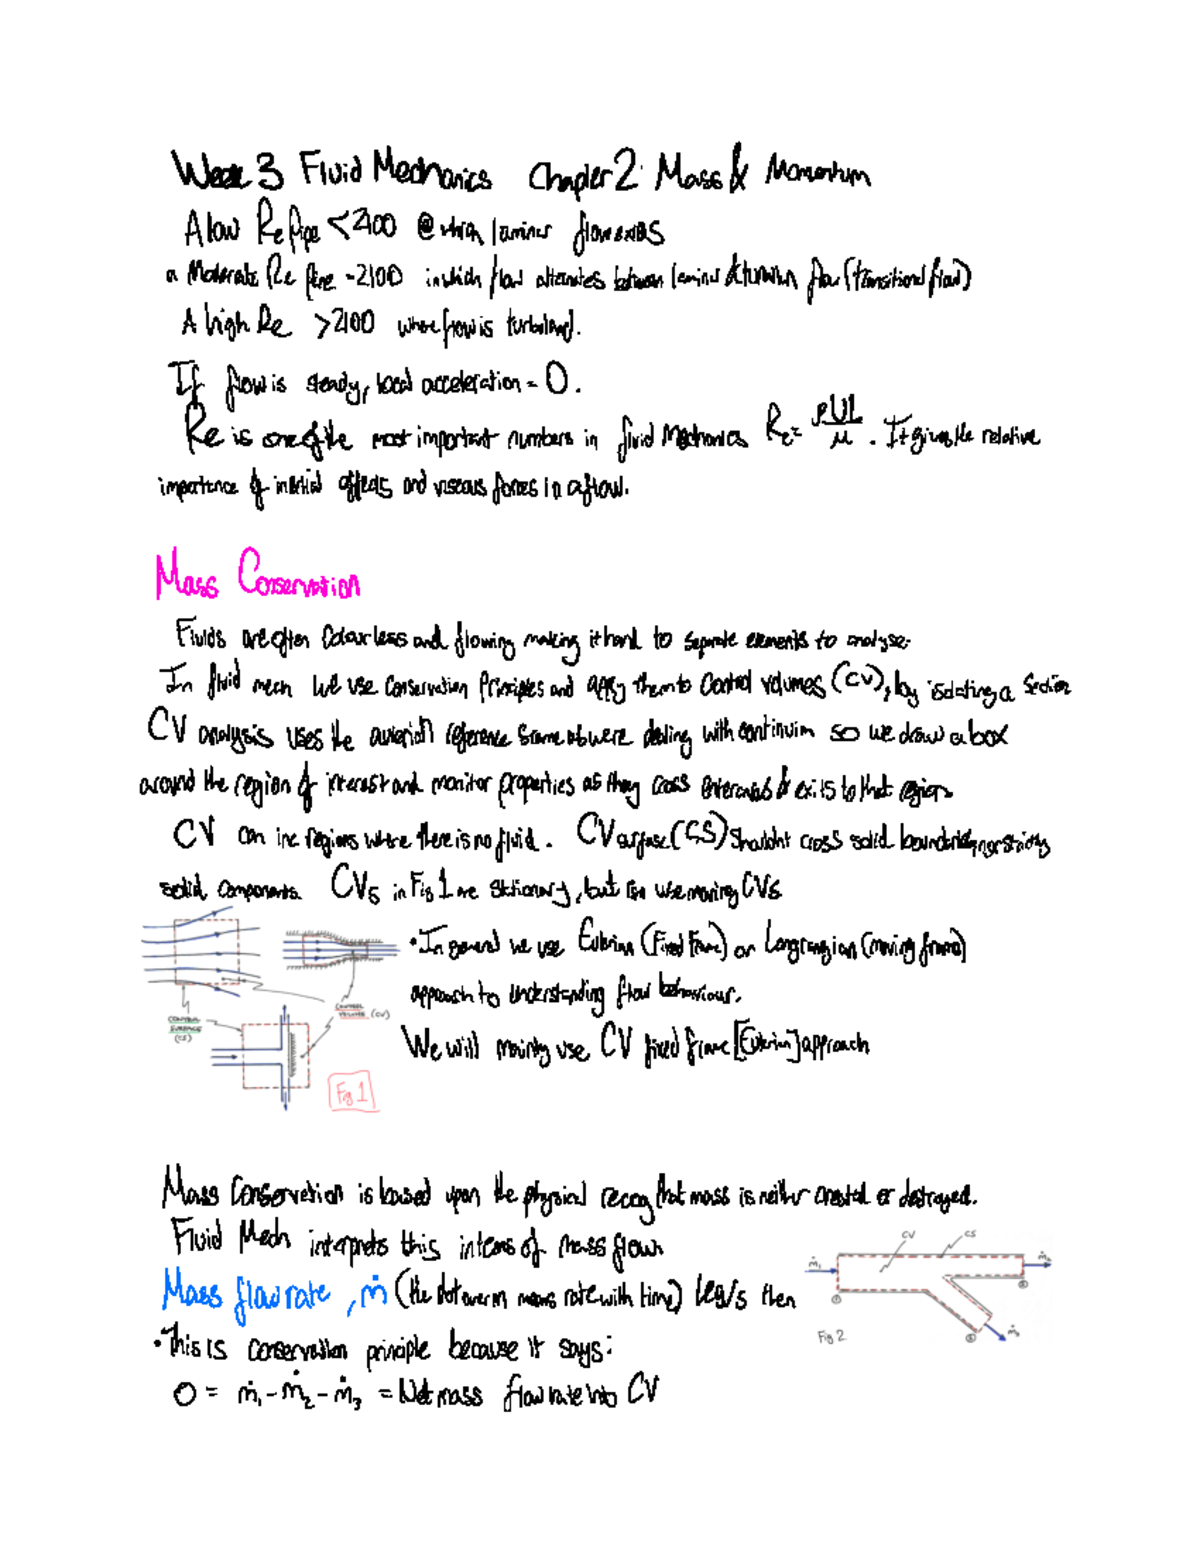 Week 3 Fluid Mechanics Chapter 2: Mass & Momentum
A low Re Pipe < 2100 @ which laminar flow exists
a Moderate Re pipe ~2100 in which flow alternates between laminar & turbulent flow (transitional flow)
A high Re > 2100 where flow is turbulent.
If flow is steady, local acceleration = 0.
Re is one of the most important numbers in fluid Mechanics Re = ρUL/μ. It gives the relative
importance of inertial effects and viscous forces in a flow.
Mass Conservation
Fluids are often Colourless and flowing making it hard to separate elements to analyse.
In fluid mech we use Conservation Principles and apply them to Control volumes (CV), by isolating a section
CV analysis uses the reference frame were dealing with continuum so we draw a box
around the region of interest and monitor properties as they cross & exits to that region
CV can inc regions where there is no fluid. CV surface (CS) Shouldnt cross solid
solid components. CVs in Fig 1 are stationary, but can use moving CVs
CONTROL SURFACE (CS)
CONTROL VOLUME (CV)
Fig 1
• In general we use (Fixed Frame) or (moving frame)
approach to understanding flow behaviour.
We will mainly use CV fixed frame approach
Mass Conservation is based upon the physical recog that mass is neither created or destroyed.
Fluid Mech interprets this in terms of mass flow
Mass flow rate, ṁ (the dot over m means rate with time) kg/s then
CV CS
ṁ₁ ṁ₂
① ②
③ ṁ₃
Fig 2
• This is conservation principle because it says:
0 = ṁ₁ - ṁ₂ - ṁ₃ = Net mass flow rate into CV